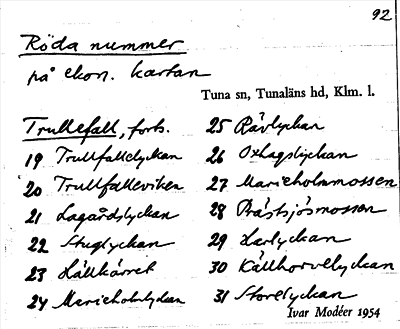 92
Röda nummer
på ekon. kartan
Tuna sn, Tunaläns hd, Klm. l.
Trullefall, forts.
19 Trullfallelyckan
20 Trullfalleviken
21 Lagårdslyckan
22 Stuglyckan
23 Hällkärret
24 Marieholmslyckan
25 Rävlyckan
26 Oxhagslyckan
27 Marieholmsmossen
28 Prästsjösmossen
29 Karlyckan
30 Källhorvelyckan
31 Storelyckan
Ivar Modéer 1954